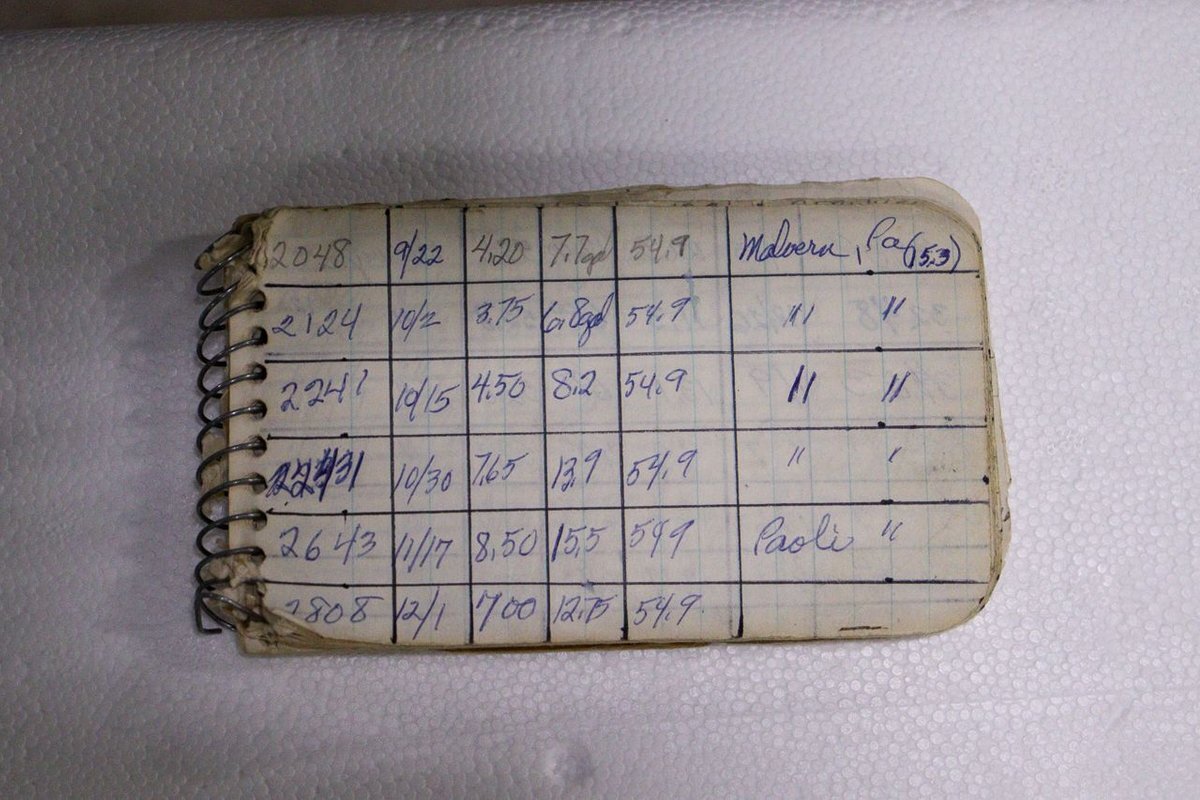 2048 9/22 4.20 7.7gal 54.9 Malvern, Pa (15.3)
2124 10/2 3.75 6.8gal 54.9 " "
2241 10/15 4.50 8.2 54.9 " "
10/30 7.65 13.9 54.9 " "
2643 11/17 8.50 15.5 549 Paoli "
2808 12/1 7.00 12.75 54.9